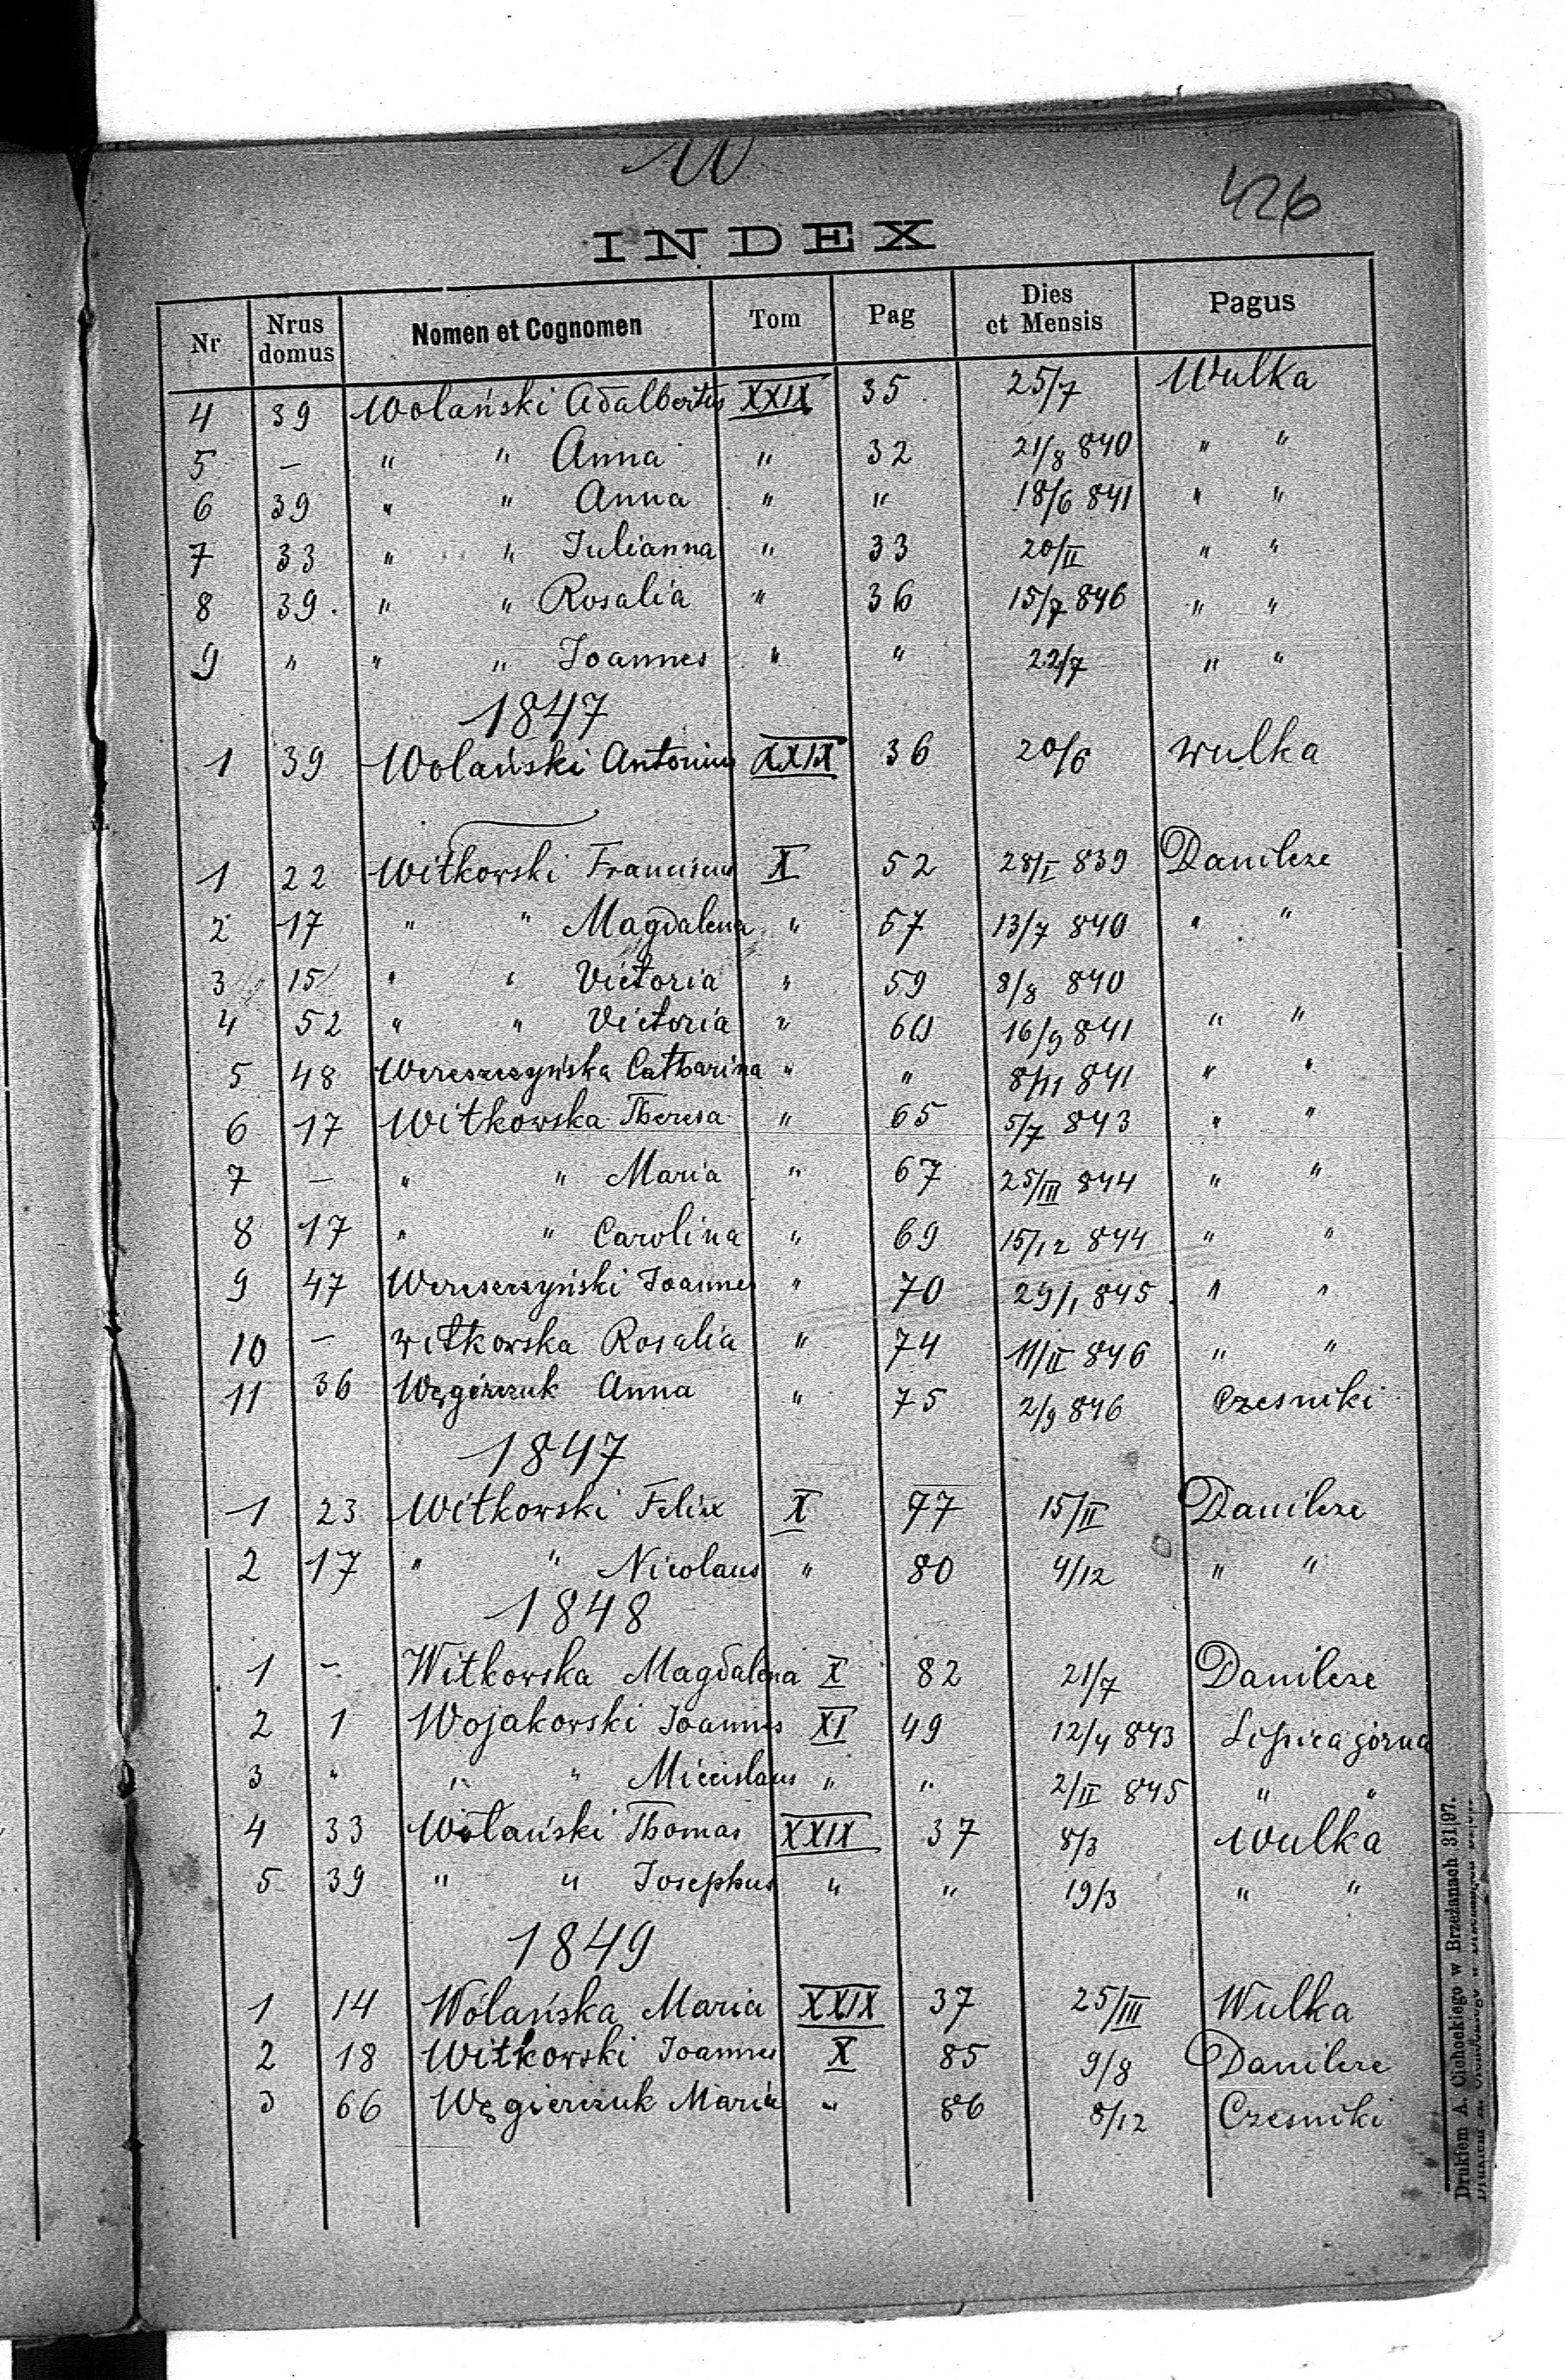 W
426
INDEX
Nr Nrus domus Nomen et Cognomen Tom Pag Dies et Mensis Pagus
4 39 Wolański Adalbertus XXIX 35 25/7 Wulka
5 – " " Anna " 32 21/8 840 " "
6 39 " " Anna " " 18/6 841 " "
7 33 " " Julianna " 33 20/II " "
8 39. " " Rosalia " 36 15/7 846 " "
9 " " " Joannes " " 22/7 " "
1847
1 39 Wolański Antonius XXIX 36 20/6 wulka
1 22 Witkowski Franciscus X 52 28/I 839 Danilcze
2 17 " " Magdalena " 57 13/7 840 " "
3 15 " " Victoria " 59 8/8 840
4 52 " " Victoria " 60 16/9 841 " "
5 48 Wereszczyńska Catharina " " 8/11 841 " "
6 17 Witkowska Theresa " 65 5/7 843 " "
7 – " " Maria " 67 25/III 844 " "
8 17 " " Carolina " 69 15/12 844 " "
9 47 Wereszczyński Joannes " 70 29/1 845 " "
10 – witkowska Rosalia " 74 11/II 846 " "
11 36 Anna " 75 2/9 846 Czesniki
1847
1 23 Witkowski Felix X 77 15/II Danilcze
2 17 " " Nicolaus " 80 4/12 " "
1848
1 – Witkowska Magdalena X 82 21/7 Danilcze
2 1 Wojakowski Joannes XI 49 12/4 843 Lipica górna
3 " " " Miecislaus " " 2/II 845 " "
4 33 Wolański Thomas XXIX 37 8/3 Wulka
5 39 " " Josephus " " 19/3 " "
1849
1 14 Wolańska Maria XXIX 37 25/III Wulka
2 18 Witkowski Joannes X 85 9/8 Danilcze
3 66 Węgierczuk Maria " 86 8/12 Czesniki
Drukiem A. Cichockiego w Brzeżanach 31|97.